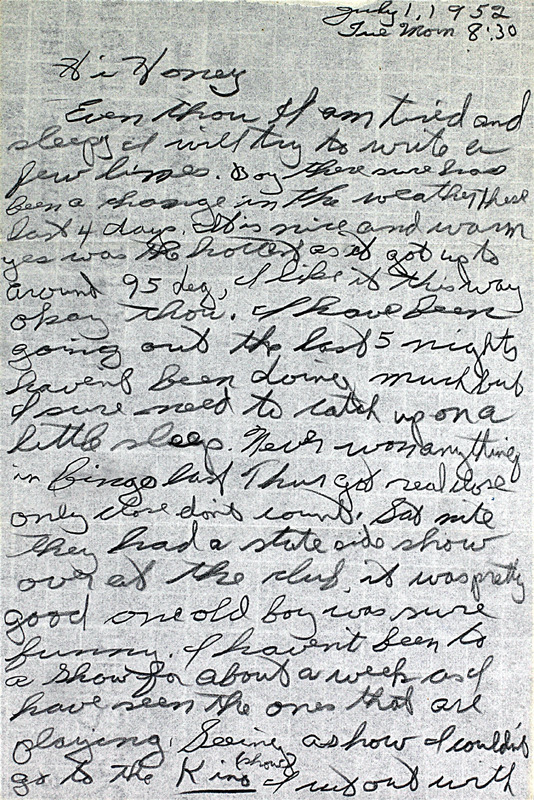 July 1, 1952
Tue Morn 8:30
Hi Honey
Even thou I am tired and
sleepy I will try to write a
few lines. Boy there sure has
been a change in the weather these
last 4 days. It is nice and warm
yes was the hottest as it got up to
around 95 deg, I like it this way
okay thou. I have been
going out the last 5 nights
havent been doing much but
I sure need to catch up on a
little sleep. Never won anything
in bingo last Thur got real close
only close dont count. Sat nite
they had a state side show
over at the club, it was pretty
good one old boy was sure
funny. I havent been to
a show for about a week as I
have seen the ones that are
playing. Seeing as how I couldnt
go to the Kino (show) I went out with